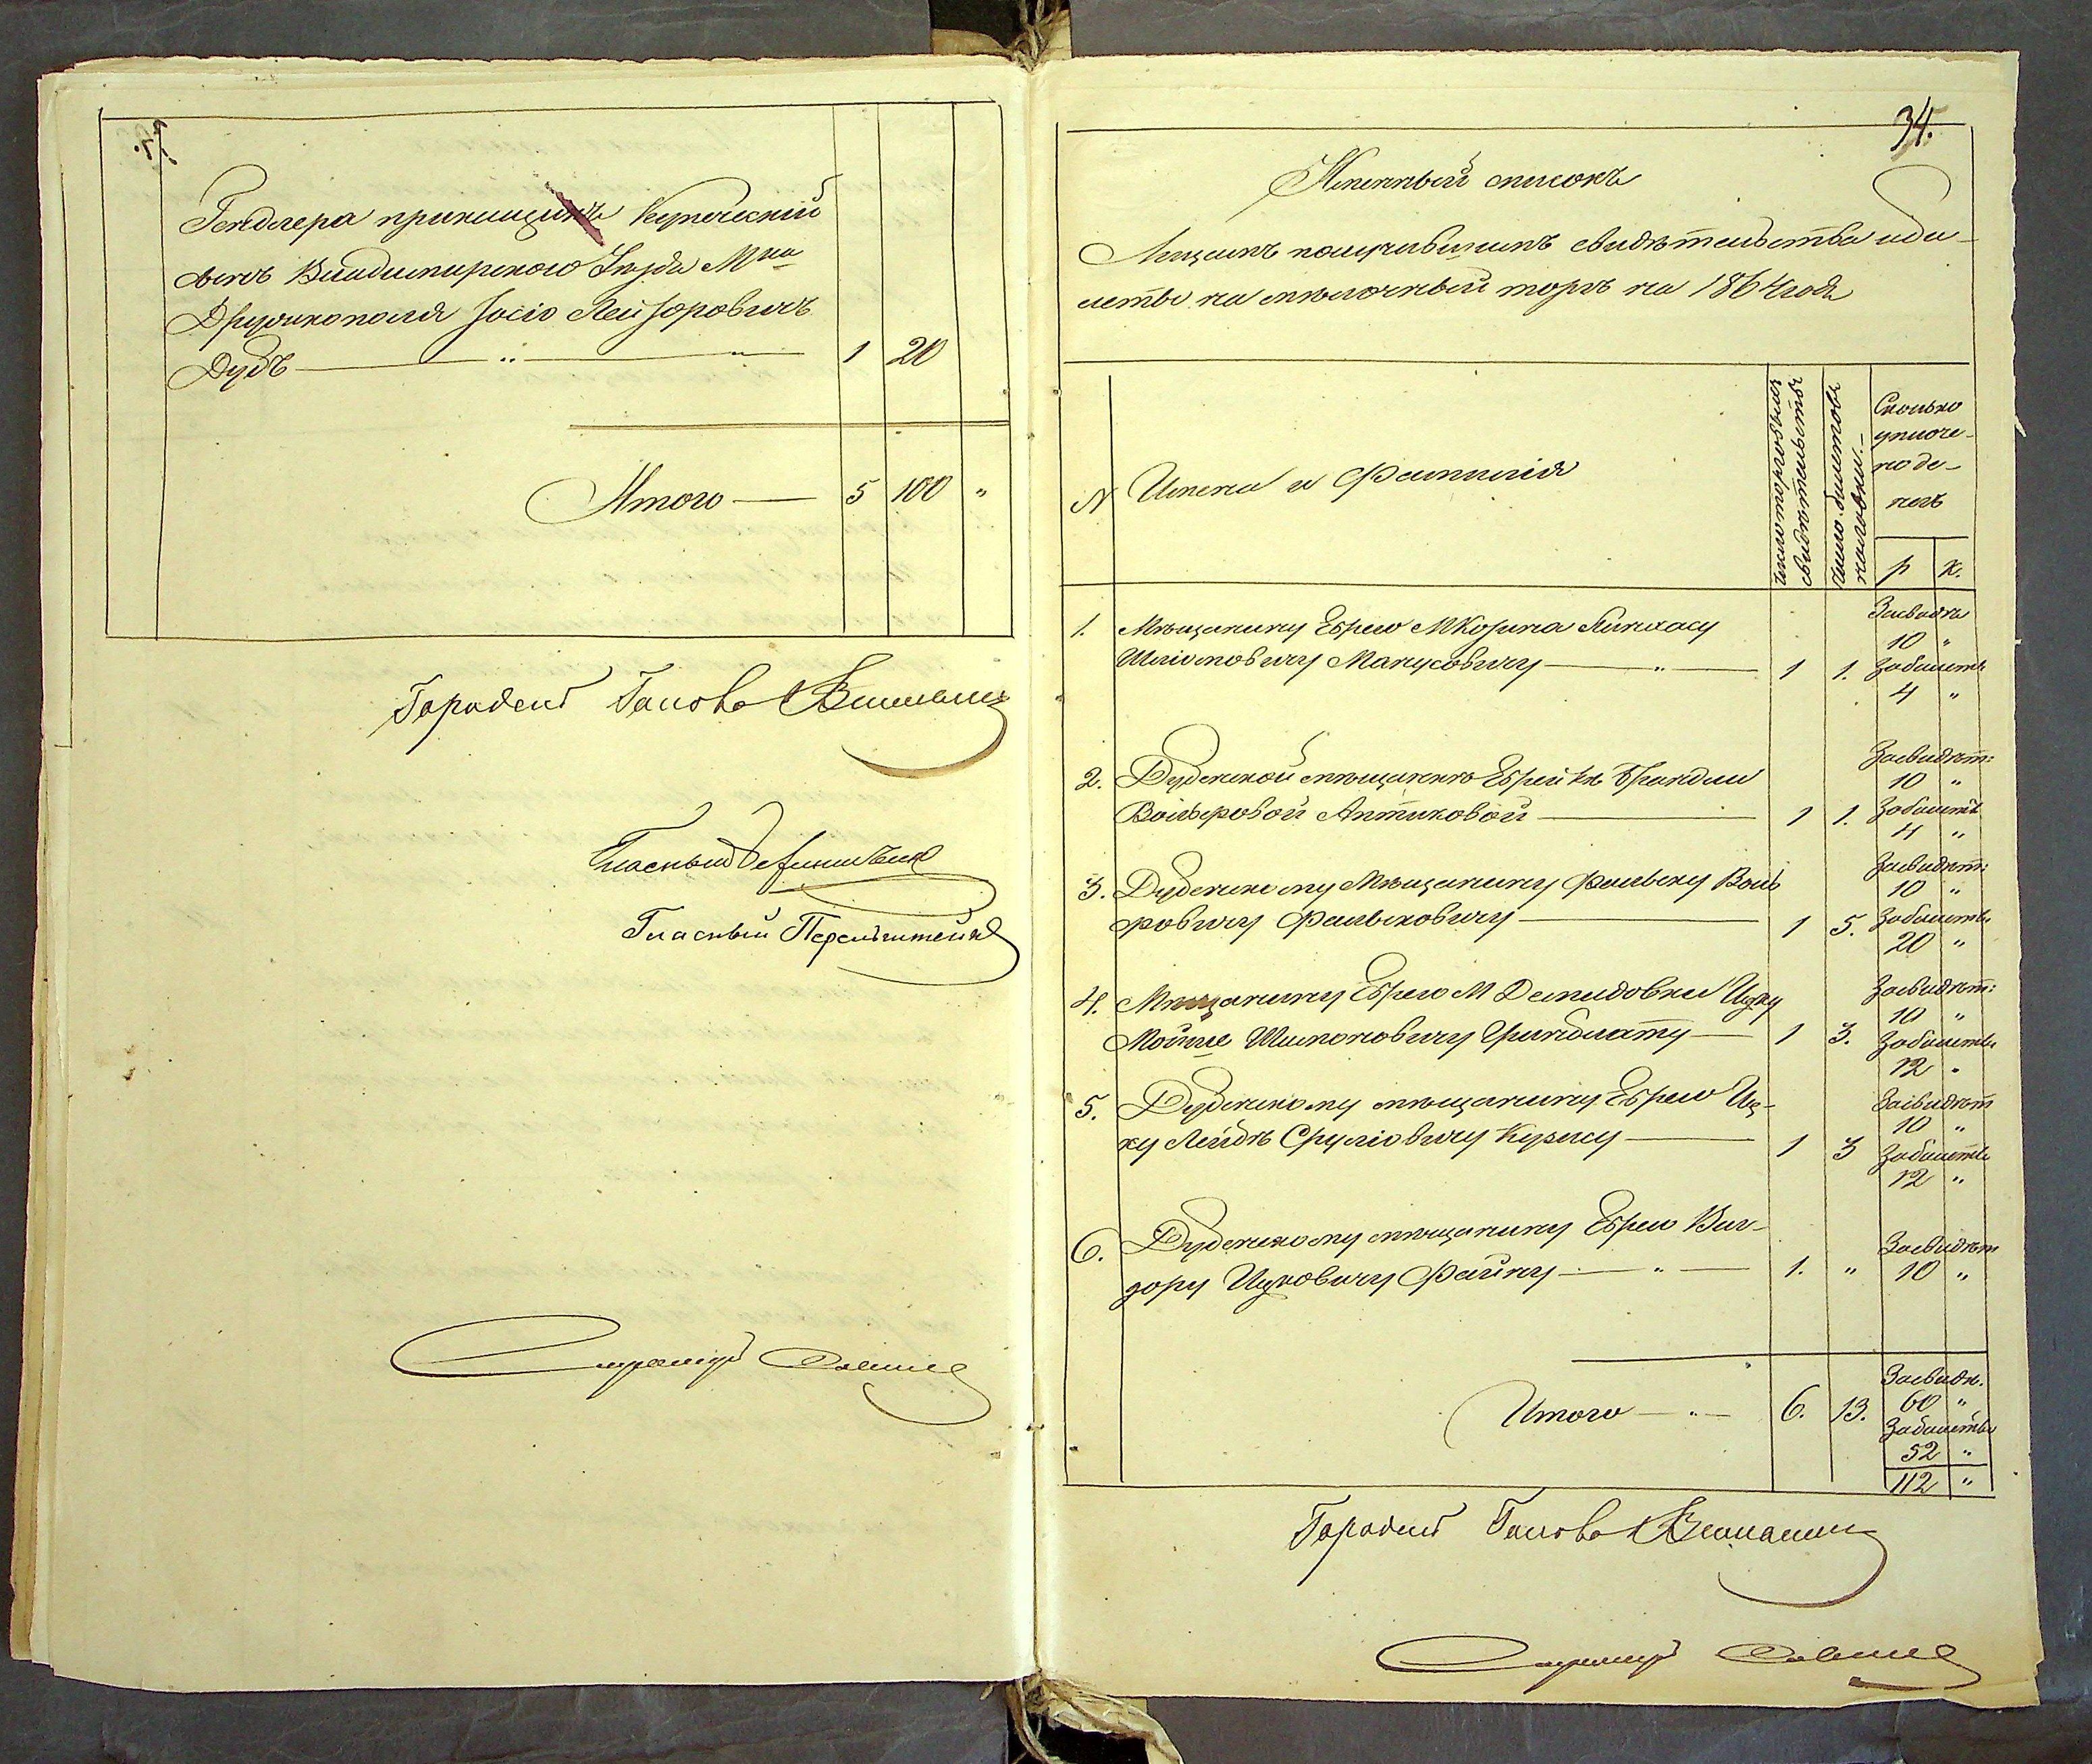 Гендлера прикащикъ Купеческій
сынъ Владимирскаго Уезда Мка
Дружкополя Іосіо Лейзоровичъ
Дубъ — " — " 1 20
Итого — 5 100 "
Городской Голова
Гласный
Гласный Перельштейнъ
34.
Именный списокъ
Лицамъ получившимъ свидѣтельства и би-
леты на мѣлочный торгъ на 1864 годъ
N
Имена и Фамилія
число торговыхъ
свидѣтельствъ
число билетовъ
на лавки.
Сколько
уплоче-
но де-
негъ
р к.
1. Мѣщанину Еврею М Козина Пинхасу
Шліомовичу Манусовичу — " — 1 1.
За свидѣ
10 "
За билетъ
4 "
2. Дубенской мѣщанкѣ Еврейкѣ Брандли
Вольфовой Аптиковой — 1 1.
За свидѣт:
10 "
За билетъ
4 "
3. Дубенскому Мѣщанину Фальку Воль
фовичу Фальковичу — 1 5.
За свидѣт:
10 "
За билеты
20 "
4. Мѣщанину Еврею М Демидовки Ицку
Мойше Шимоновичу Гринблату — 1 3.
За свидѣт:
10 "
За билеты
12 "
5. Дубенскому мѣщанину Еврею Иц-
ку Лейбѣ Сруліовичу Курцу — 1 3
За свидѣт
10 "
За билеты
12 "
6. Дубенскому мѣщанину Еврею Виг-
дору Ицковичу Файну — " — 1. "
За свидѣт
10 "
Итого — " — 6. 13.
За свидѣ.
60 "
За билеты
52 "
112 "
Городской Голова